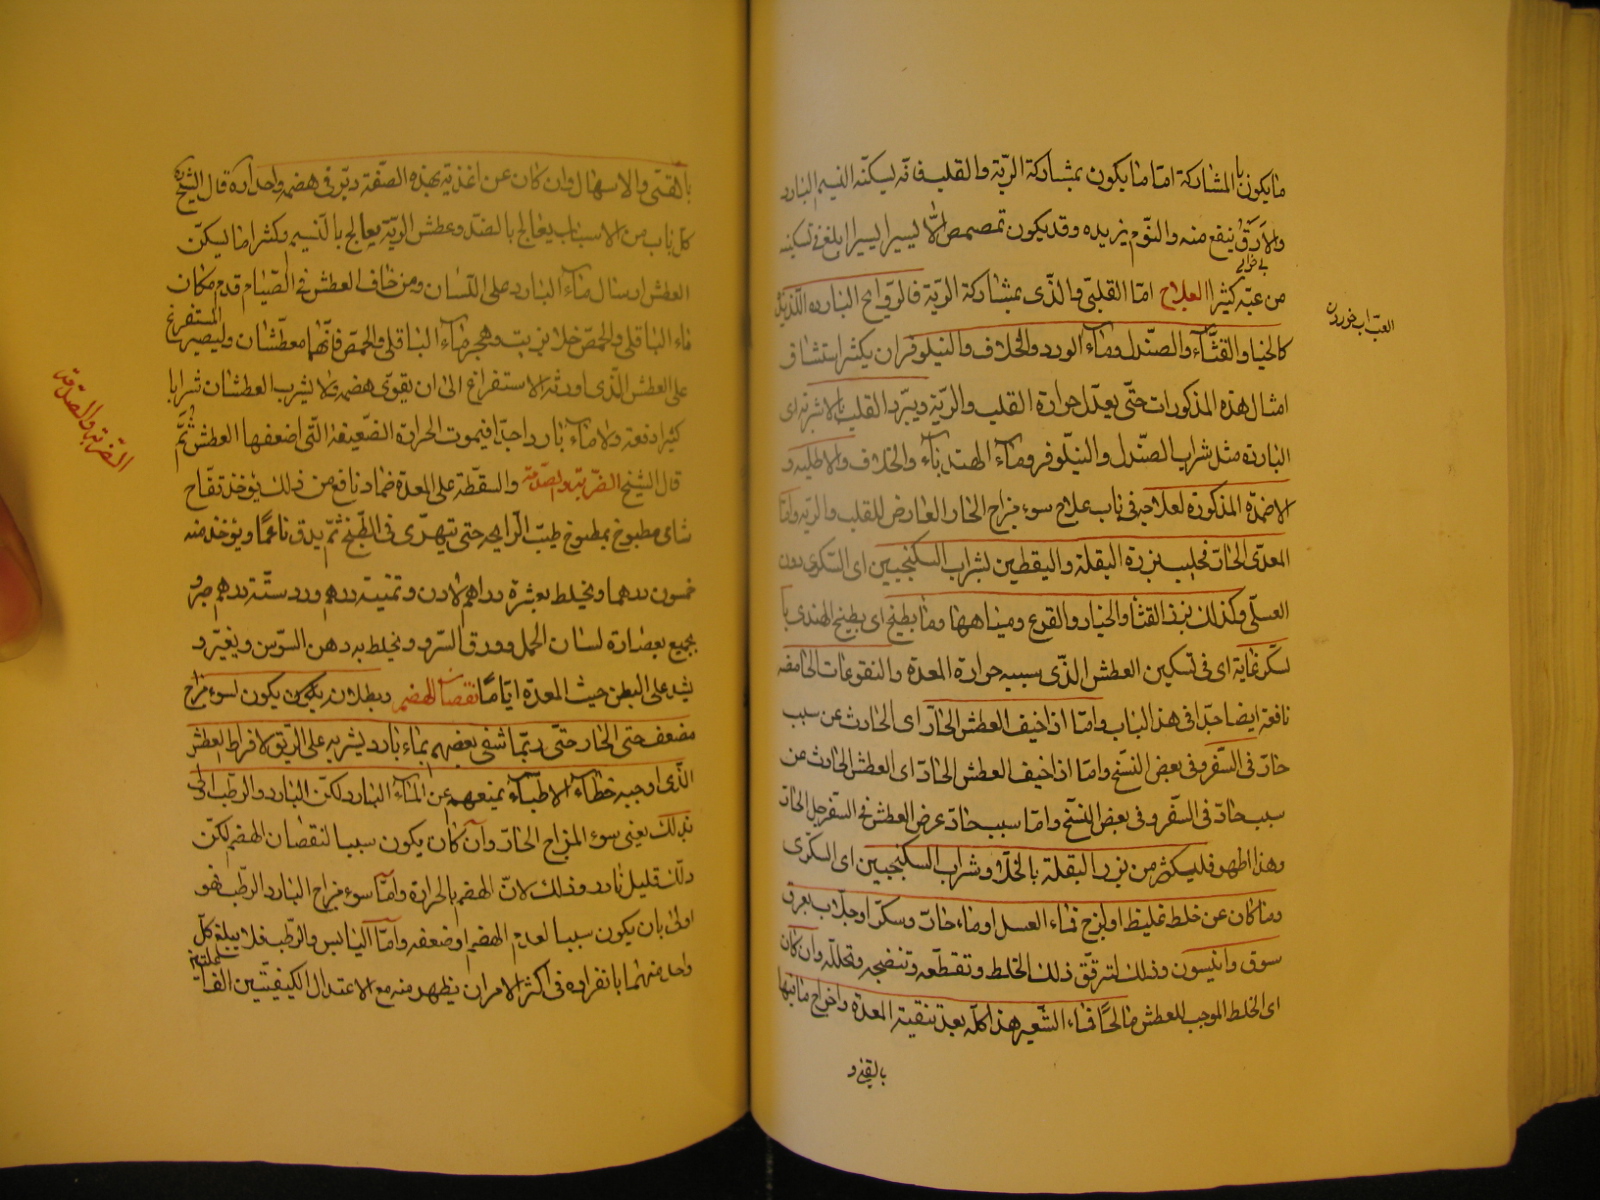 ما يكون بالمشاركة امّا ما يكون بمشاركة الريّة والقلب فانّه ليسكنّه النسيم البارد
والارق ينفع منه والنّوم يزيده وقد يكون تمصمص الماء ليسيرا ليسيرا ابلغ في تسكينه
بى خوابى
من عبّه كثيرا العلاج امّا القلبىّ والّذى بمشاركة الريّة فالروايح البارده اللذيذة
العبّ اب خوردن
كالخيار والقثّاء والصّندل وماء الورد والخلاف والنيلوفر ان يكثر استنشاق
امثال هذه المذكورات حتّى يعدّل حرارة القلب والريّة ويبرّد القلب بالاشربة اى
الباردة مثل شراب الصّندل والنيلوفر وماء الهندباء والخلاف والاطلية و
الاضمدة المذكورة لعلاجه فى باب علاج سوء مزاج الحار العارض للقلب والريّة وامّا
المعدّى الحارّ فحليب بزرة البقلة واليقطين بشراب السكنجبين اى السّكرى دون
العسلى وكذلك بزر القثا والخيار والقرع ومياهها وما بطيخ اى بطيخ الهندى با
لسكر غاية اى فى تسكين العطش الذّى سببه حرارة المعدة والنقوعات الحامضة
نافعة ايضا جدّا فى هذا الباب وامّا اذا خيف العطش الحارّ اى الحادث عن سبب
حارّ فى السّفر وفى بعض النسخ وامّا اذا خيف العطش الحادّ اى العطش الحادث من
سبب حادّ فى السّفر وفى بعض النسخ وامّا سبب حادّ عرض العطش فى السّفر جل الحادّ
وهذا اظهر فليكثر من بزر البقلة بالخلّ او شراب السكنجبين اى السكرى
وما كان عن خلط غليظ او لزج فماء العسل او ماء حارّ وسكّر او جلّاب بعرق
سوق وانيسون وذلك لترقّق ذلك الخلط وتقطّعه وتنضجه وتحلّله وان كان
اى الخلط الموجب للعطش مالحًا فماء الشّعير هذا كلّه بعد تنقية المعدة واخراج ما فيها
بالقئ و
بالقئى والاسهال وان كان عن اغذية بهذه الصّفة دبّر فى هضمه واحداره قال الشيخ
كل باب من الاسباب يعالج بالضدّ وعطش الريّة يعالج بالنسيم وكثيرا ما ليسكّن
العطش ارسال ماء البارد على اللّسان ومن خاف العطش فى الصّيام قدم مكان
ماء الباقلى والحمّص خلا بزيت وهجر ماء الباقلى والحمص فانّهما معطّشان وليصبر المستفرغ
على العطش الّذى اورثه الاستفراغ الى ان يقوى هضمه ولا يشرب العطشان شرابا
كثيرا دفعة ولا ماء باردا جدّا فيموت الحرارة الضّعيفة الّتى اضعفها العطش ثمّ
الضربة والصدمة
قال الشّيخ الضربة والصّدمة والسقطة على المعدة ضماد نافع من ذلك يؤخذ تفّاح
شامى مطبوخ بمطبوخ طيّب الرايحة حتى يتهرّى فى الطّبخ ثمّ يدق ناعمًا ويؤخذ منه
خمسون درهما ويخلط بعشرة دراهم لادن وثمنية درهم ورد ستّة درهم صبر و
يجمع بعصارة لسان الحمل وورق السّرو ويخلط به دهن السّوسن ويفتّر و
يشد على البطن حيث المعدة ايّامًا نقصان الهضم وبطلانه يكون يكون لسوء مزاج
مضعف حتّى الحار حتّى ربّما شفى بعضهم بماء بارد يشربه على الريق لافراط العطش
الّذى اوجبه خطاء الاطبّاء بمنعهم عن الماء البارد لكن البارد والرطب اولى
بذلك يعنى سوء المزاج الحارّ وان كان يكون سببا لنقصان الهضم لكنّ
ذلك قليل نادر وذلك لانّ الهضم بالحرارة وامّا سوء مزاج البارد الرطب فهو
اولى بان يكون سببا لعدم الهضم او ضعفه وامّا اليابس والرّطب فلا يبلغ كلّ
واحد منهما بانفراده فى اكثر الامر ان يظهر منه مع الاعتدال الكيفيّتين الفا